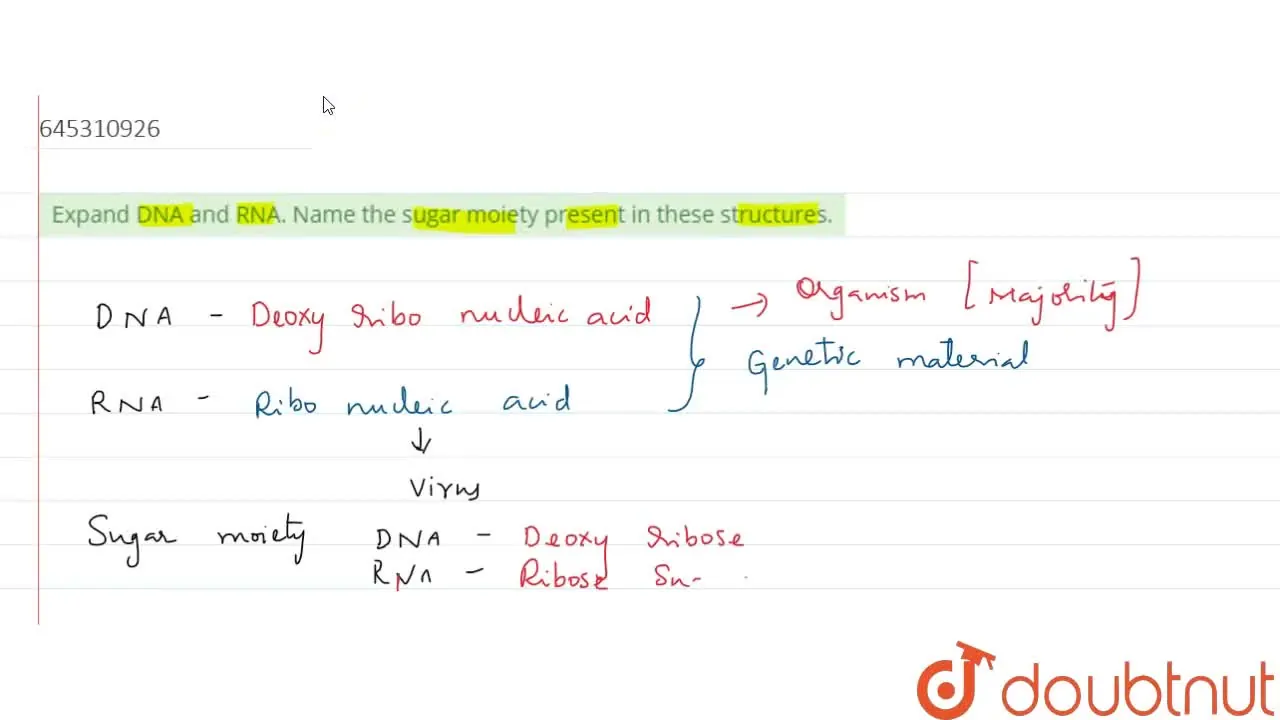 645310926
Expand DNA and RNA. Name the sugar moiety present in these structures.
DNA - Deoxy ribo nucleic acid → Organism [Majority]
Genetic material
RNA - Ribo nucleic acid
↓
Virus
Sugar moiety DNA - Deoxy ribose
RNA - Ribose Su-
doubtnut